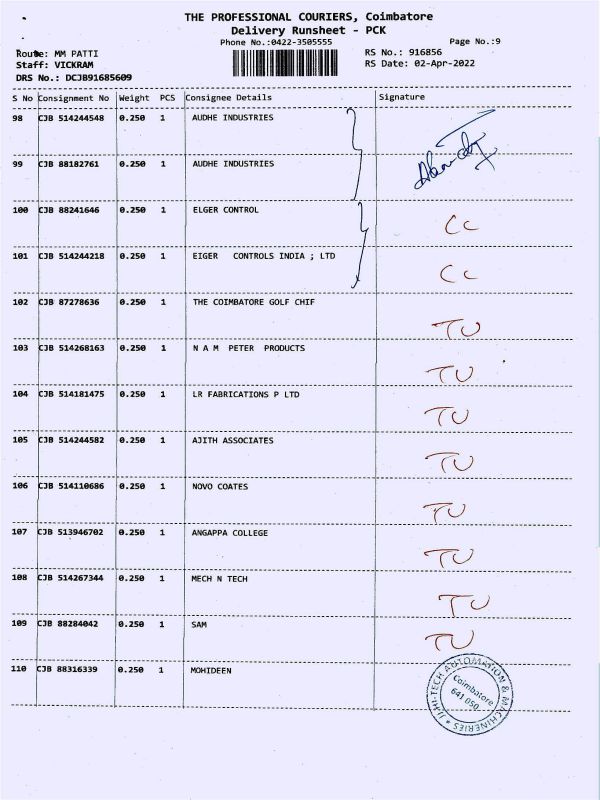 THE PROFESSIONAL COURIERS, Coimbatore
Delivery Runsheet - PCK
Phone No.:0422-3505555 Page No.:9
Route: MM PATTI RS No.: 916856
Staff: VICKRAM RS Date: 02-Apr-2022
DRS No.: DCJB91685609
S No Consignment No Weight PCS Consignee Details Signature
98 CJB 514244548 0.250 1 AUDHE INDUSTRIES
99 CJB 88182761 0.250 1 AUDHE INDUSTRIES
100 CJB 88241646 0.250 1 ELGER CONTROL CC
101 CJB 514244218 0.250 1 EIGER CONTROLS INDIA ; LTD CC
102 CJB 87278636 0.250 1 THE COIMBATORE GOLF CHIF TU
103 CJB 514268163 0.250 1 N A M PETER PRODUCTS TU
104 CJB 514181475 0.250 1 LR FABRICATIONS P LTD TU
105 CJB 514244582 0.250 1 AJITH ASSOCIATES TU
106 CJB 514110686 0.250 1 NOVO COATES TU
107 CJB 513946702 0.250 1 ANGAPPA COLLEGE TU
108 CJB 514267344 0.250 1 MECH N TECH TU
109 CJB 88284042 0.250 1 SAM TU
110 CJB 88316339 0.250 1 MOHIDEEN
HI-TECH AUTOMATION & MACHINERIES
Coimbatore
641 050